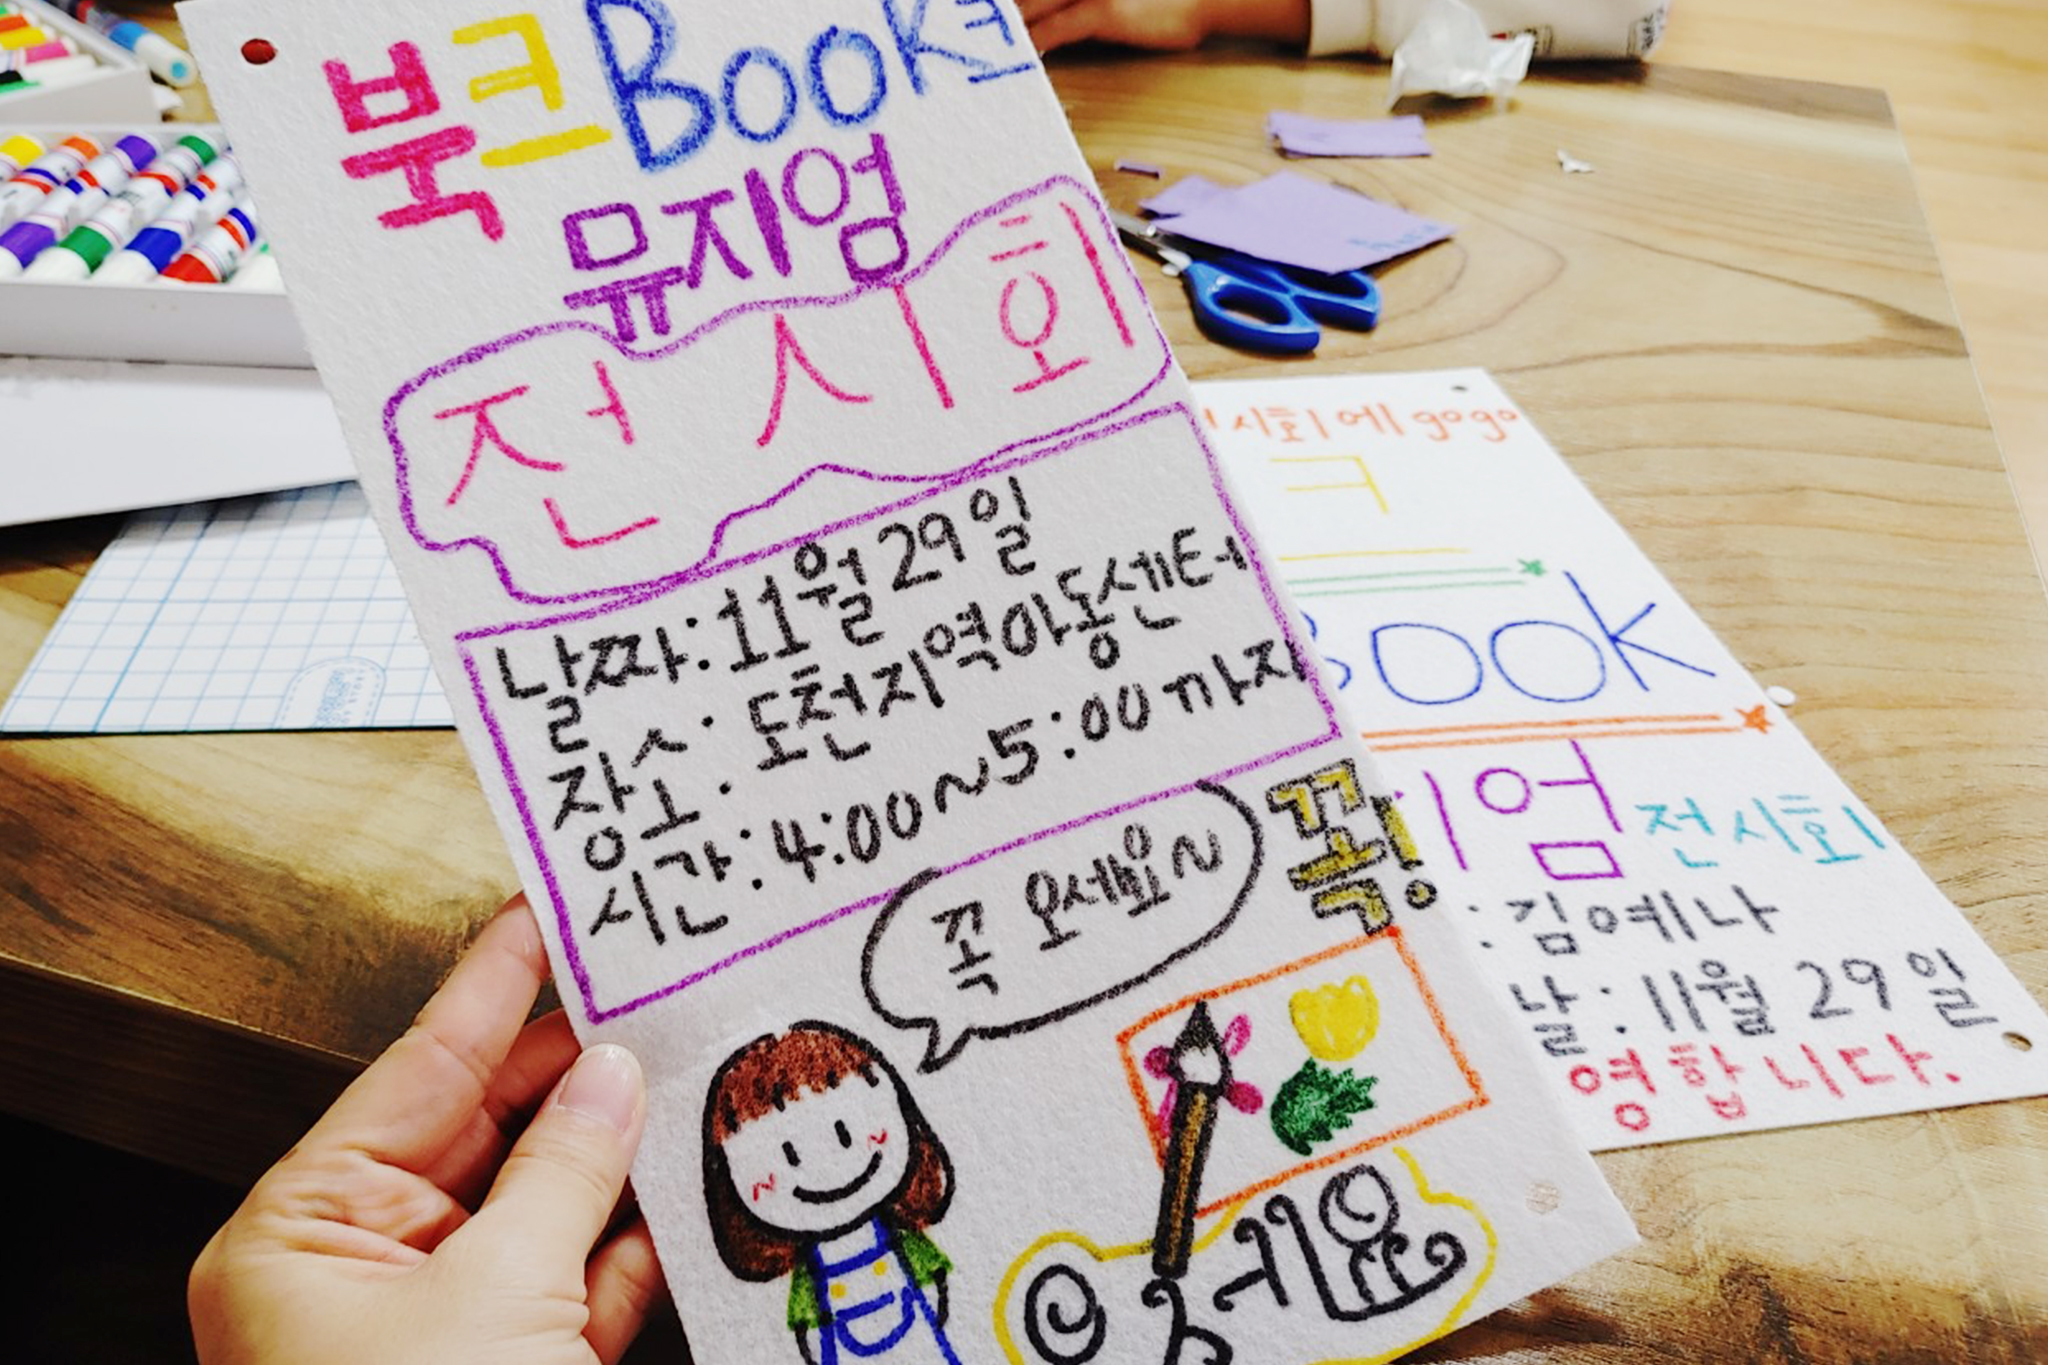 북크BOOK크
뮤지엄
전시회
날짜:11월 29일
장소: 도천지역아동센터
시간:4:00~5:00까지
꼭 오세요~
꼭꼭!
오세요
시회에 gogo
크
BOOK
지엄 전시회
: 김예나
날:11월 29일
영합니다.